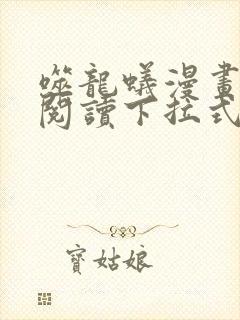 噬龍蟻漫畫
閱讀下拉式
寶姑娘